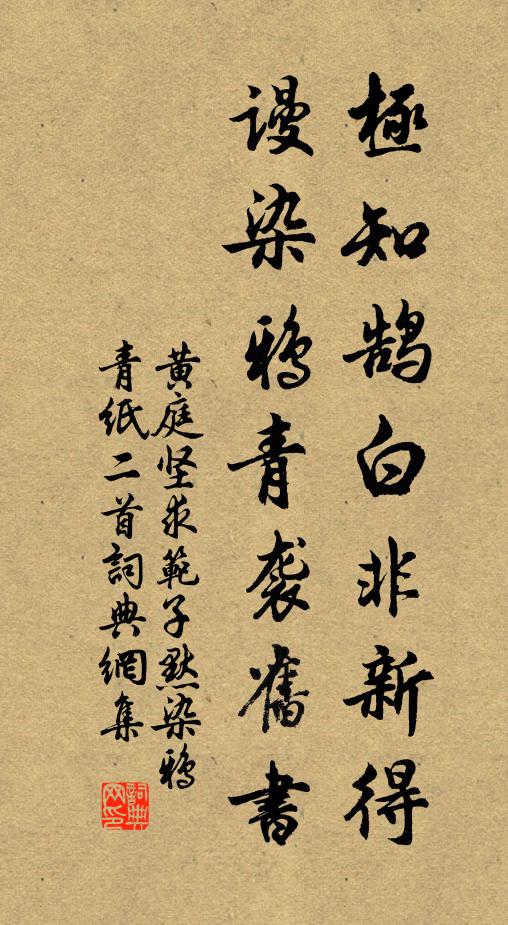 極知鹄白非新得
谩染鴉青袭舊書
黄庭坚求範子默染鴉
青紙二首詞典網集
詞典网印